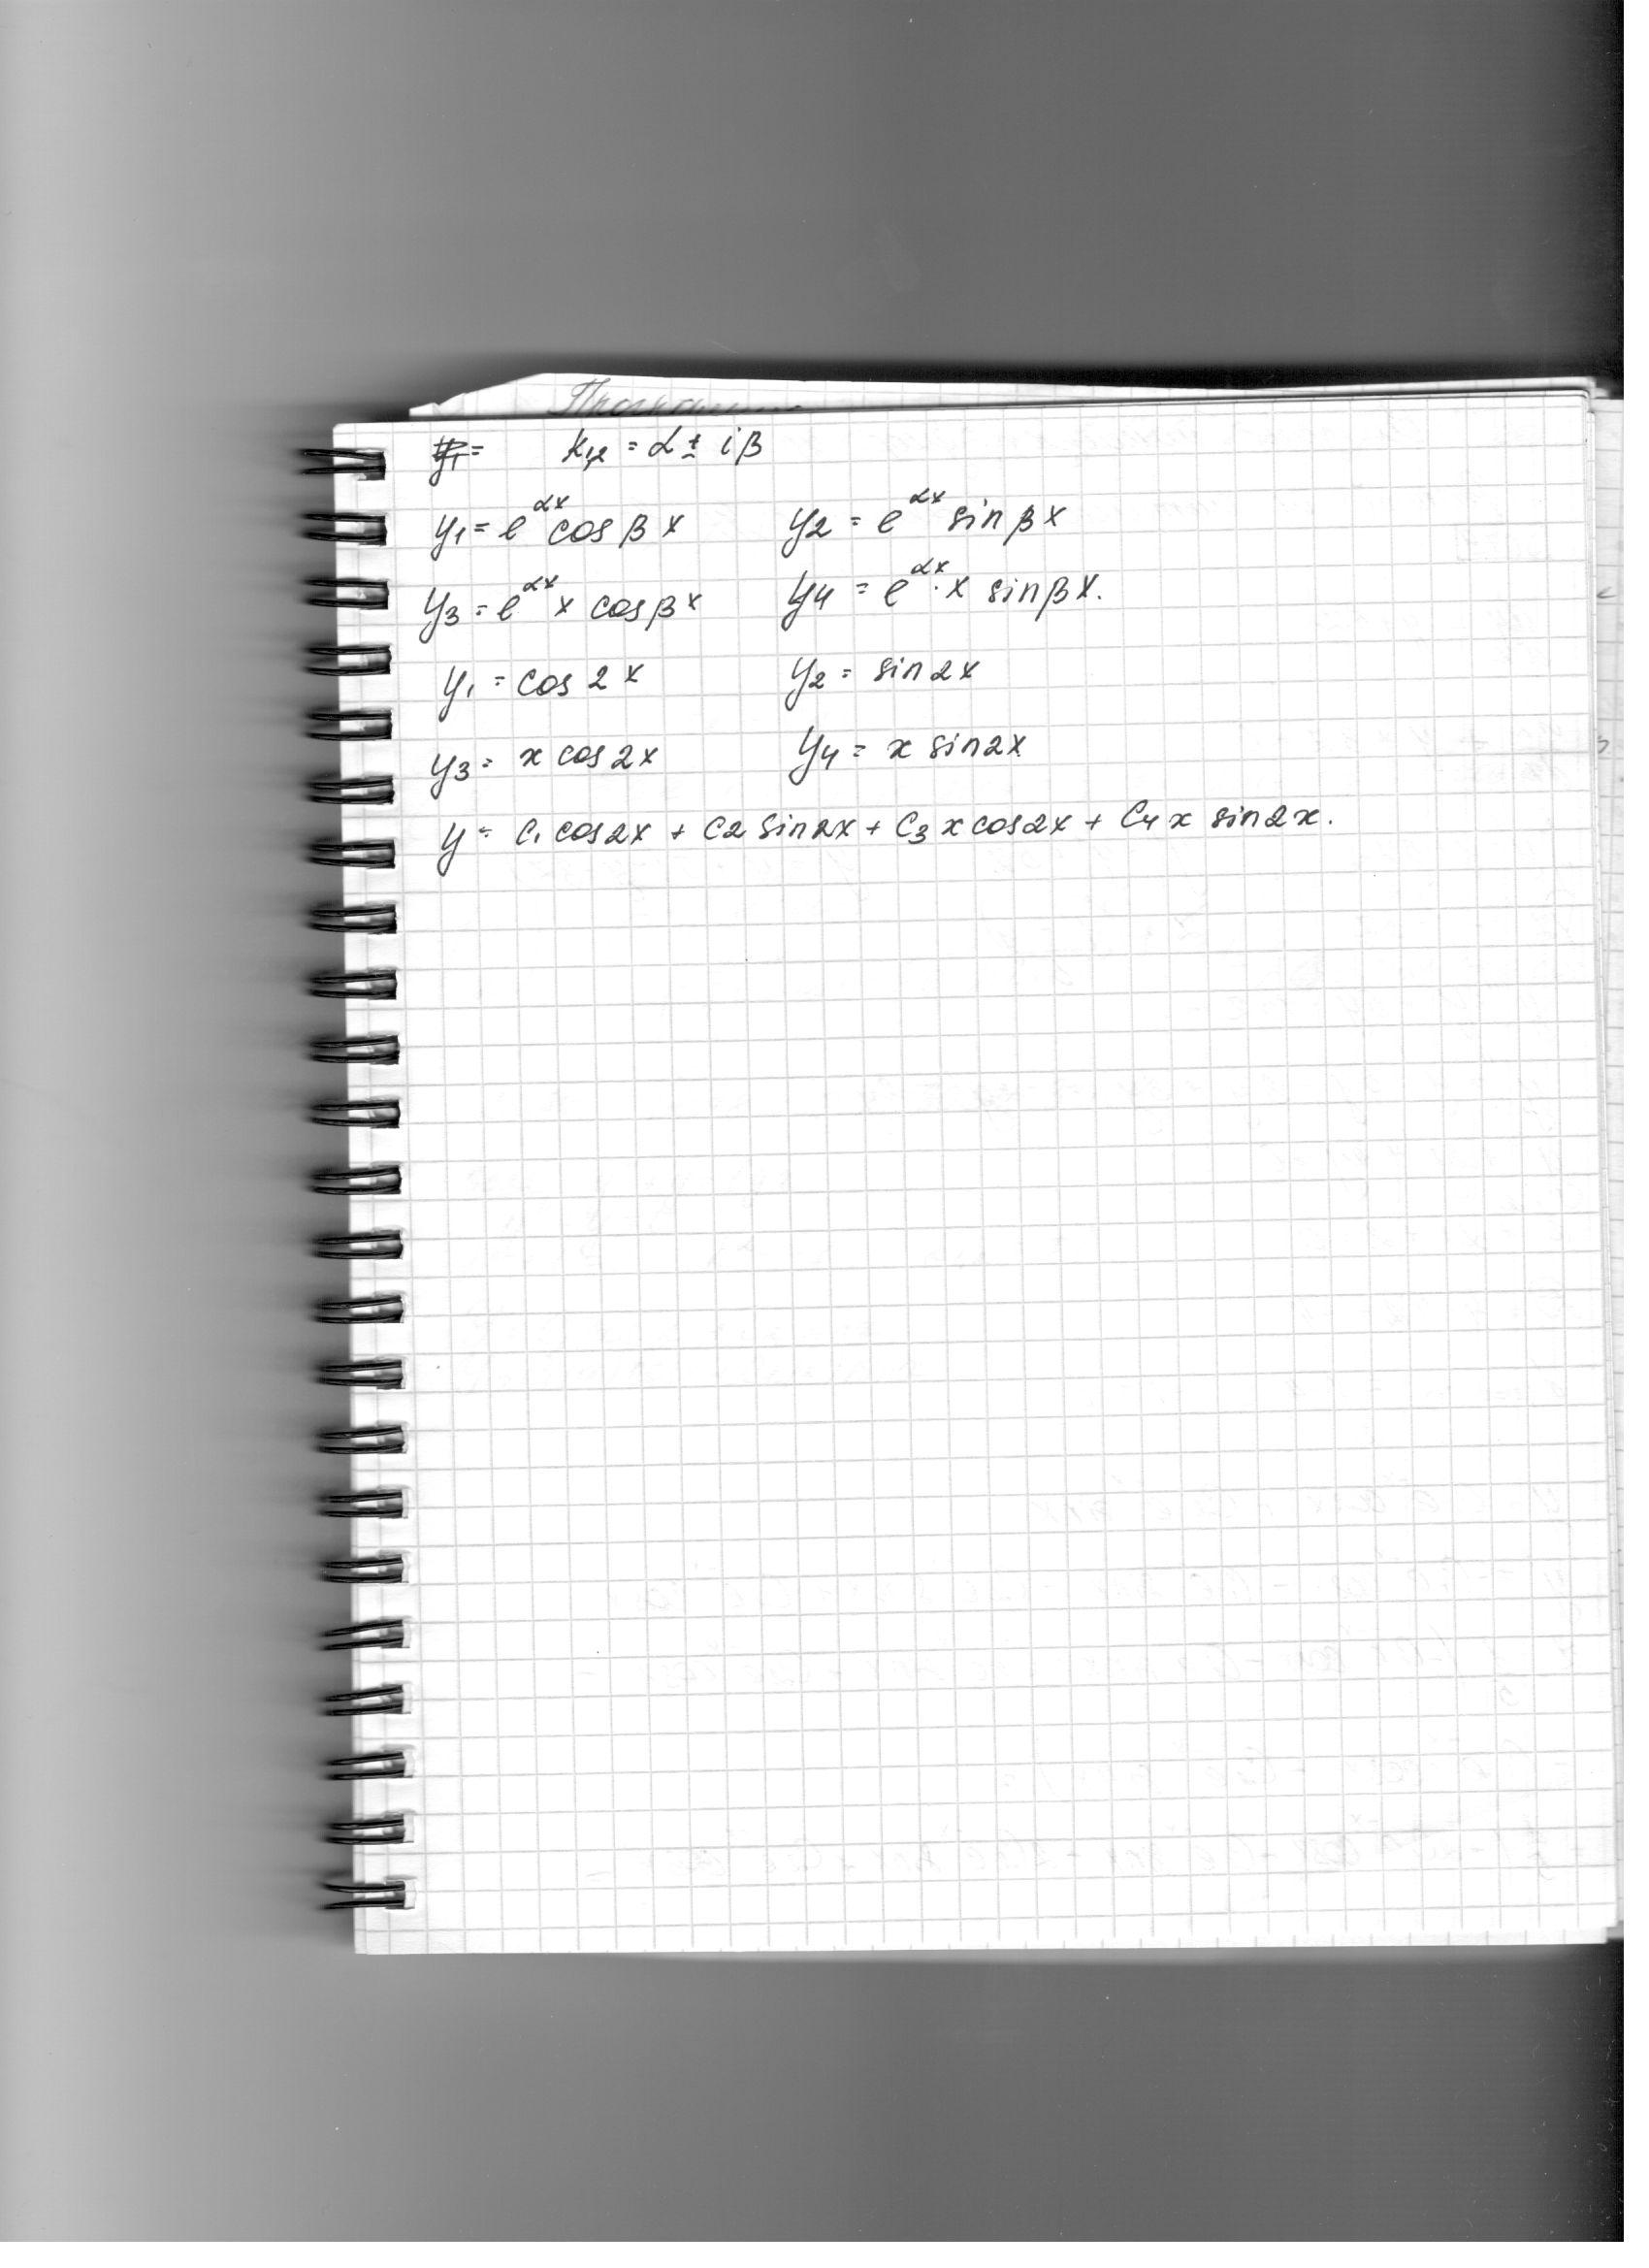 k₁,₂ = α ± iβ
y₁ = e^{αx} cos βx y₂ = e^{αx} sin βx
y₃ = e^{αx} x cos βx y₄ = e^{αx} · x sin βx.
y₁ = cos 2x y₂ = sin 2x
y₃ = x cos 2x y₄ = x sin 2x
y = C₁ cos 2x + C₂ sin 2x + C₃ x cos 2x + C₄ x sin 2x.